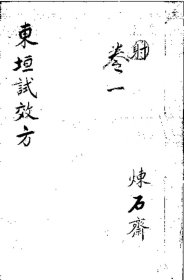 煉石齋
卷一
東垣試效方